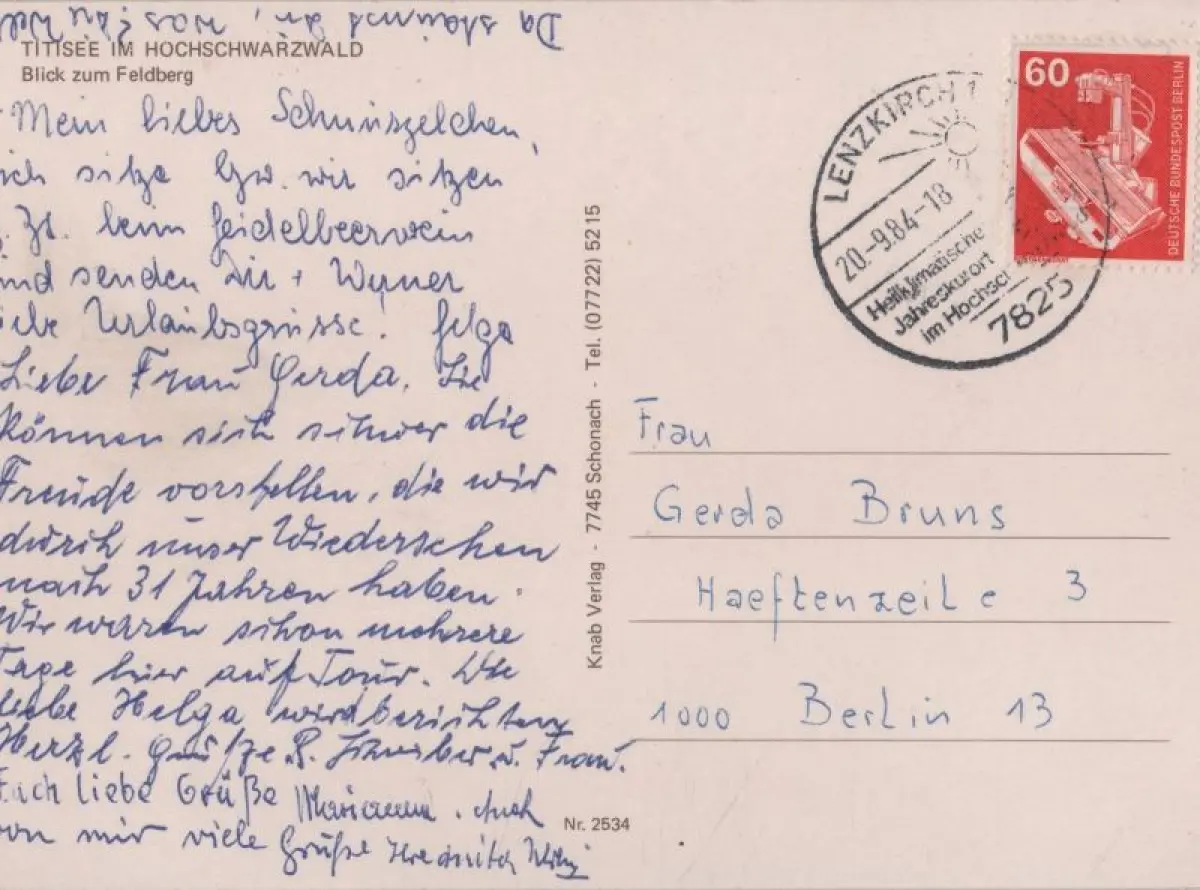 Da staunst du, was?
TITISEE IM HOCHSCHWARZWALD
Blick zum Feldberg
Mein liebes
ich sitze bzw. wir sitzen
z. Zt. beim Heidelbeerwein
und senden Dir + Werner
liebe Urlaubsgrüsse! Helga
Liebe Frau Gerda, Sie
können sich schwer die
Freude vorstellen, die wir
durch unser Wiedersehen
nach 31 Jahren haben.
Wir waren schon mehrere
Tage hier auf Tour. Die
liebe Helga wird berichten
Herzl. Grüße R. Schreiber u. Frau.
Euch liebe Grüße Marianne. Auch
von mir viele Grüße
Nr. 2534
Knab Verlag - 7745 Schonach - Tel. (07722) 5215
LENZKIRCH 1
20.-9.84-18
Heilklimatische
Jahreskurort
im Hochsc
7825
60
DEUTSCHE BUNDESPOST BERLIN
Frau
Gerda Bruns
Haeftenzeile 3
1000 Berlin 13